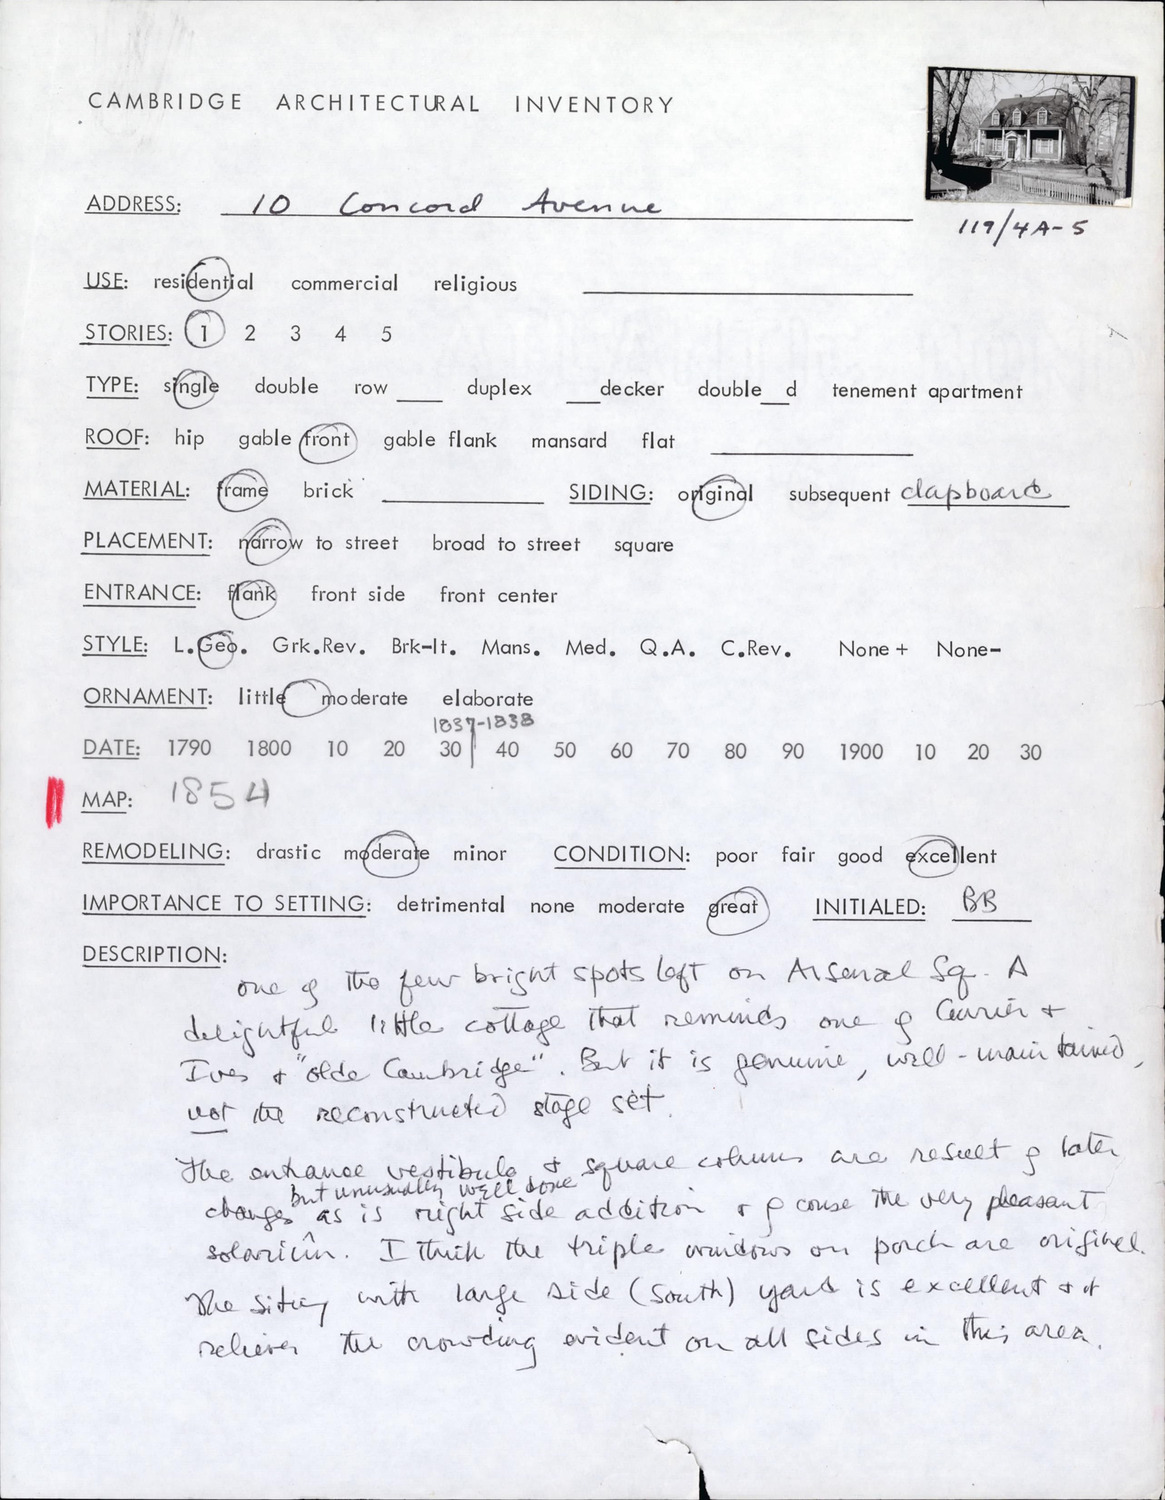 CAMBRIDGE ARCHITECTURAL INVENTORY
119/4A-5
ADDRESS: 10 Concord Avenue
USE: residential commercial religious
STORIES: 1 2 3 4 5
TYPE: single double row ___ duplex ___decker double__d tenement apartment
ROOF: hip gable front gable flank mansard flat
MATERIAL: frame brick SIDING: original subsequent clapboard
PLACEMENT: narrow to street broad to street square
ENTRANCE: flank front side front center
STYLE: L.Geo. Grk.Rev. Brk-It. Mans. Med. Q.A. C.Rev. None + None-
ORNAMENT: little moderate elaborate
1837-1838
DATE: 1790 1800 10 20 30 40 50 60 70 80 90 1900 10 20 30
MAP: 1854
REMODELING: drastic moderate minor CONDITION: poor fair good excellent
IMPORTANCE TO SETTING: detrimental none moderate great INITIALED: BB
DESCRIPTION:
one of the few bright spots left on Arsenal Sq. A
delightful little cottage that reminds one of Currier +
Ives + "olde Cambridge". But it is genuine, well-maintained,
not the reconstructed stage set.
The entrance vestibule + square columns are result of later
but unusually well done
changes as is right side addition + of course the very pleasant
solarium. I think the triple windows on porch are original.
The siting with large side (South) yard is excellent + it
relieves the crowding evident on all sides in this area.